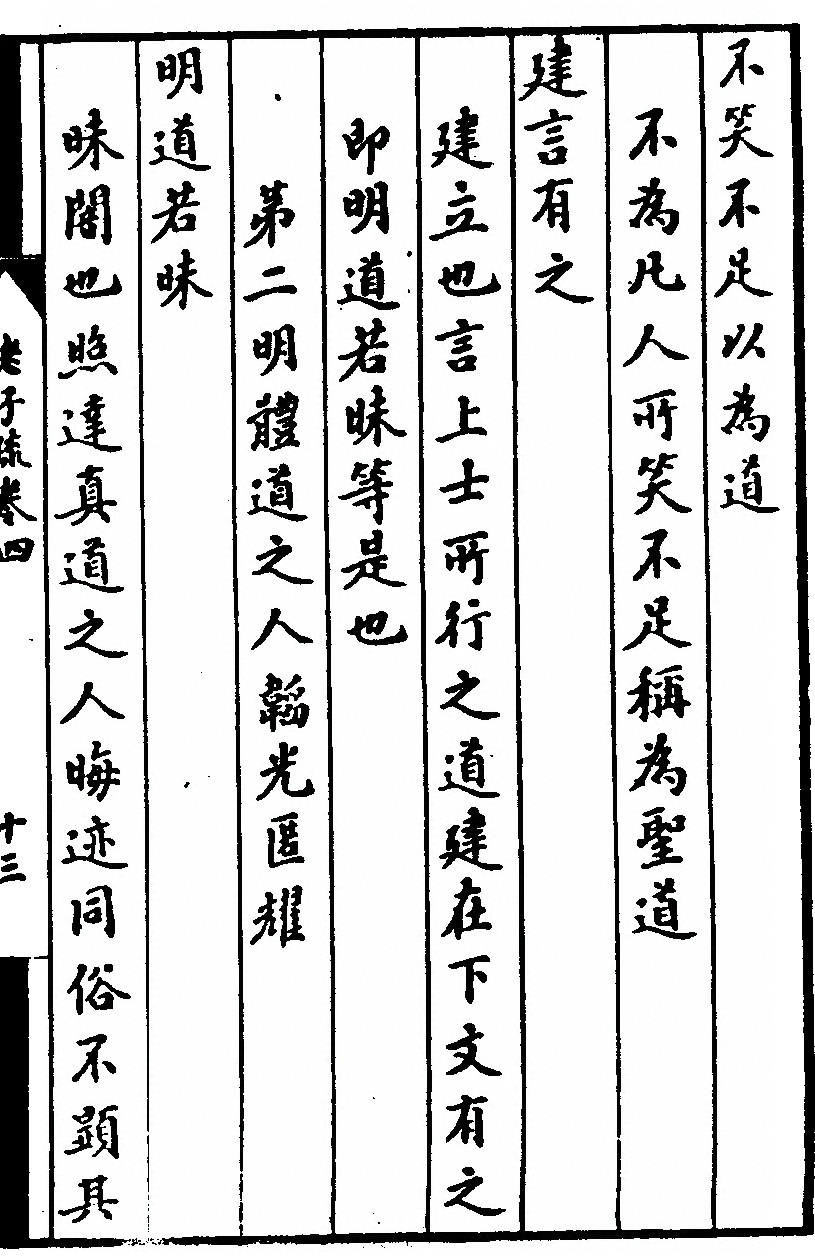 不笑不足以為道
不為凡人所笑不足稱為聖道
建言有之
建立也言上士所行之道建在下文有之
即明道若昧等是也
第二明體道之人韜光匿耀
明道若昧
昧闇也照達真道之人晦迹同俗不顯其
老子疏卷四
十三